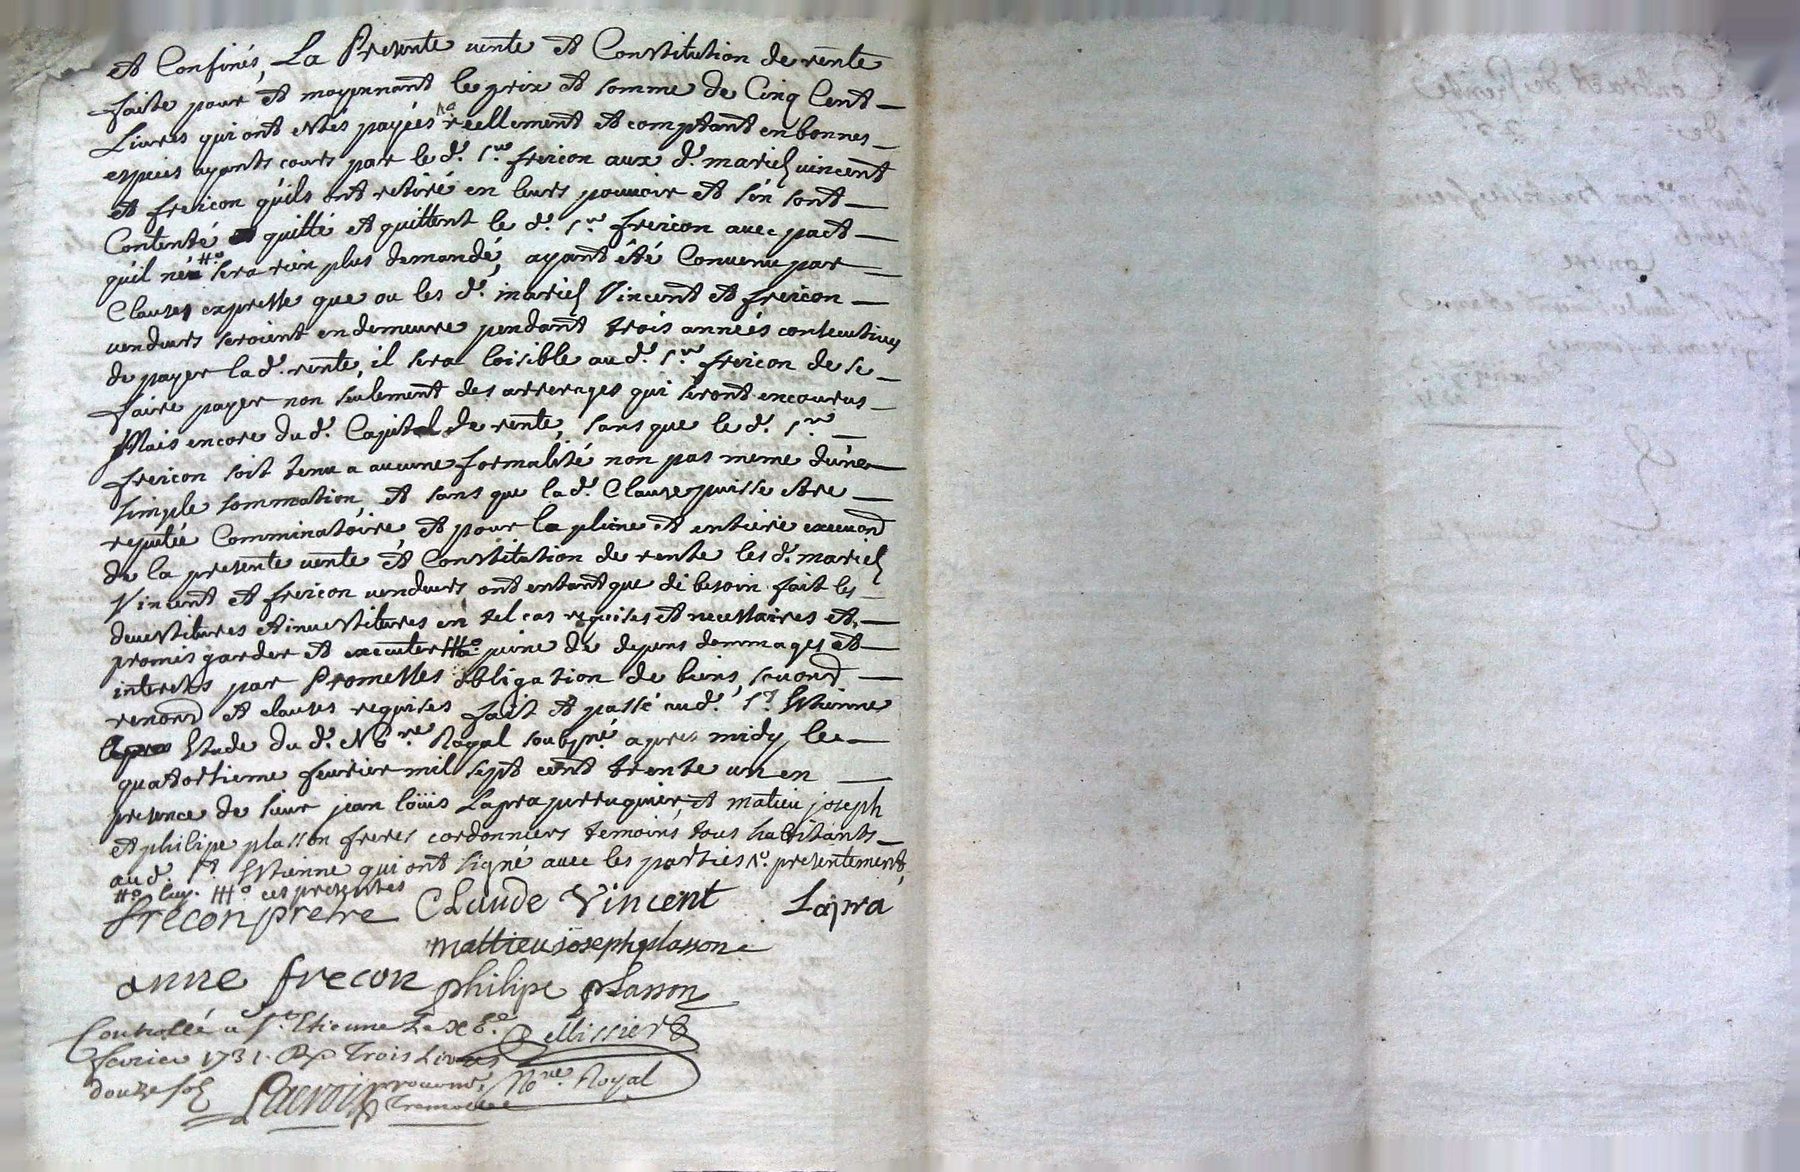 et Confinés, La Presente vente et Constitution de rente
faite pour et moyennant le prix et somme de Cinq Cent
Livres qui ont etés payées N.o reellement et comptant en bonnes
especes ayants cours par le d. s.r freicon aux d. mariés vincent
et freicon qu'ils ont retiré en leurs pouvoir et s'en sont
Contenté quitté et quittent le d. s.r freicon avec pact
qu'il ne #o sera rien plus demandé, ayant été Convenu par
Clauses expresse que ou les d. mariés Vincent et freicon
vendeurs seroient en demeure pendant trois années consecutives
de payer la d. rente, il sera loisible au d. s.r freicon de se
faire payer non seulement des arrerages qui seront encourus
Mais encore du d. Capital de rente, sans que le d. s.r
freicon soit tenu a aucune formalité non pas meme d'une
simple sommation, et sans que la d. Clause puisse etre
reputée Comminatoire, et pour la pleine et entiere execuon
de la presente vente et Constitution de rente les d. mariés
Vincent et freicon vendeurs ont entant que de besoin fait les
devestitures et investitures en tel cas requises et necessaires et
promis garder et executer ##o peine de depens dommages et
interets par Promesses obligation de biens,
renond et clauses requises fait et passé au d. S.t Estienne
Etude du d. No.re Royal soubsné apres midy le
quatorzieme fevrier mil sept cent trente un en
presence de sieur jean loüis Lapra perruquier et matieu joseph
et philipe plasson freres cordonniers temoins tous habitants
au d. S.t Estienne qui ont signé avec les parties N.o presentement,
#o luy. ##o ces presentes
frecon pretre Claude Vincent Lapra
mattieu joseph plasson
anne frecon philipe plasson
Controllé a S.t Etienne Le
fevrier 1731. Trois Livres Pellissier
douze sols No.re Royal
Lacroix